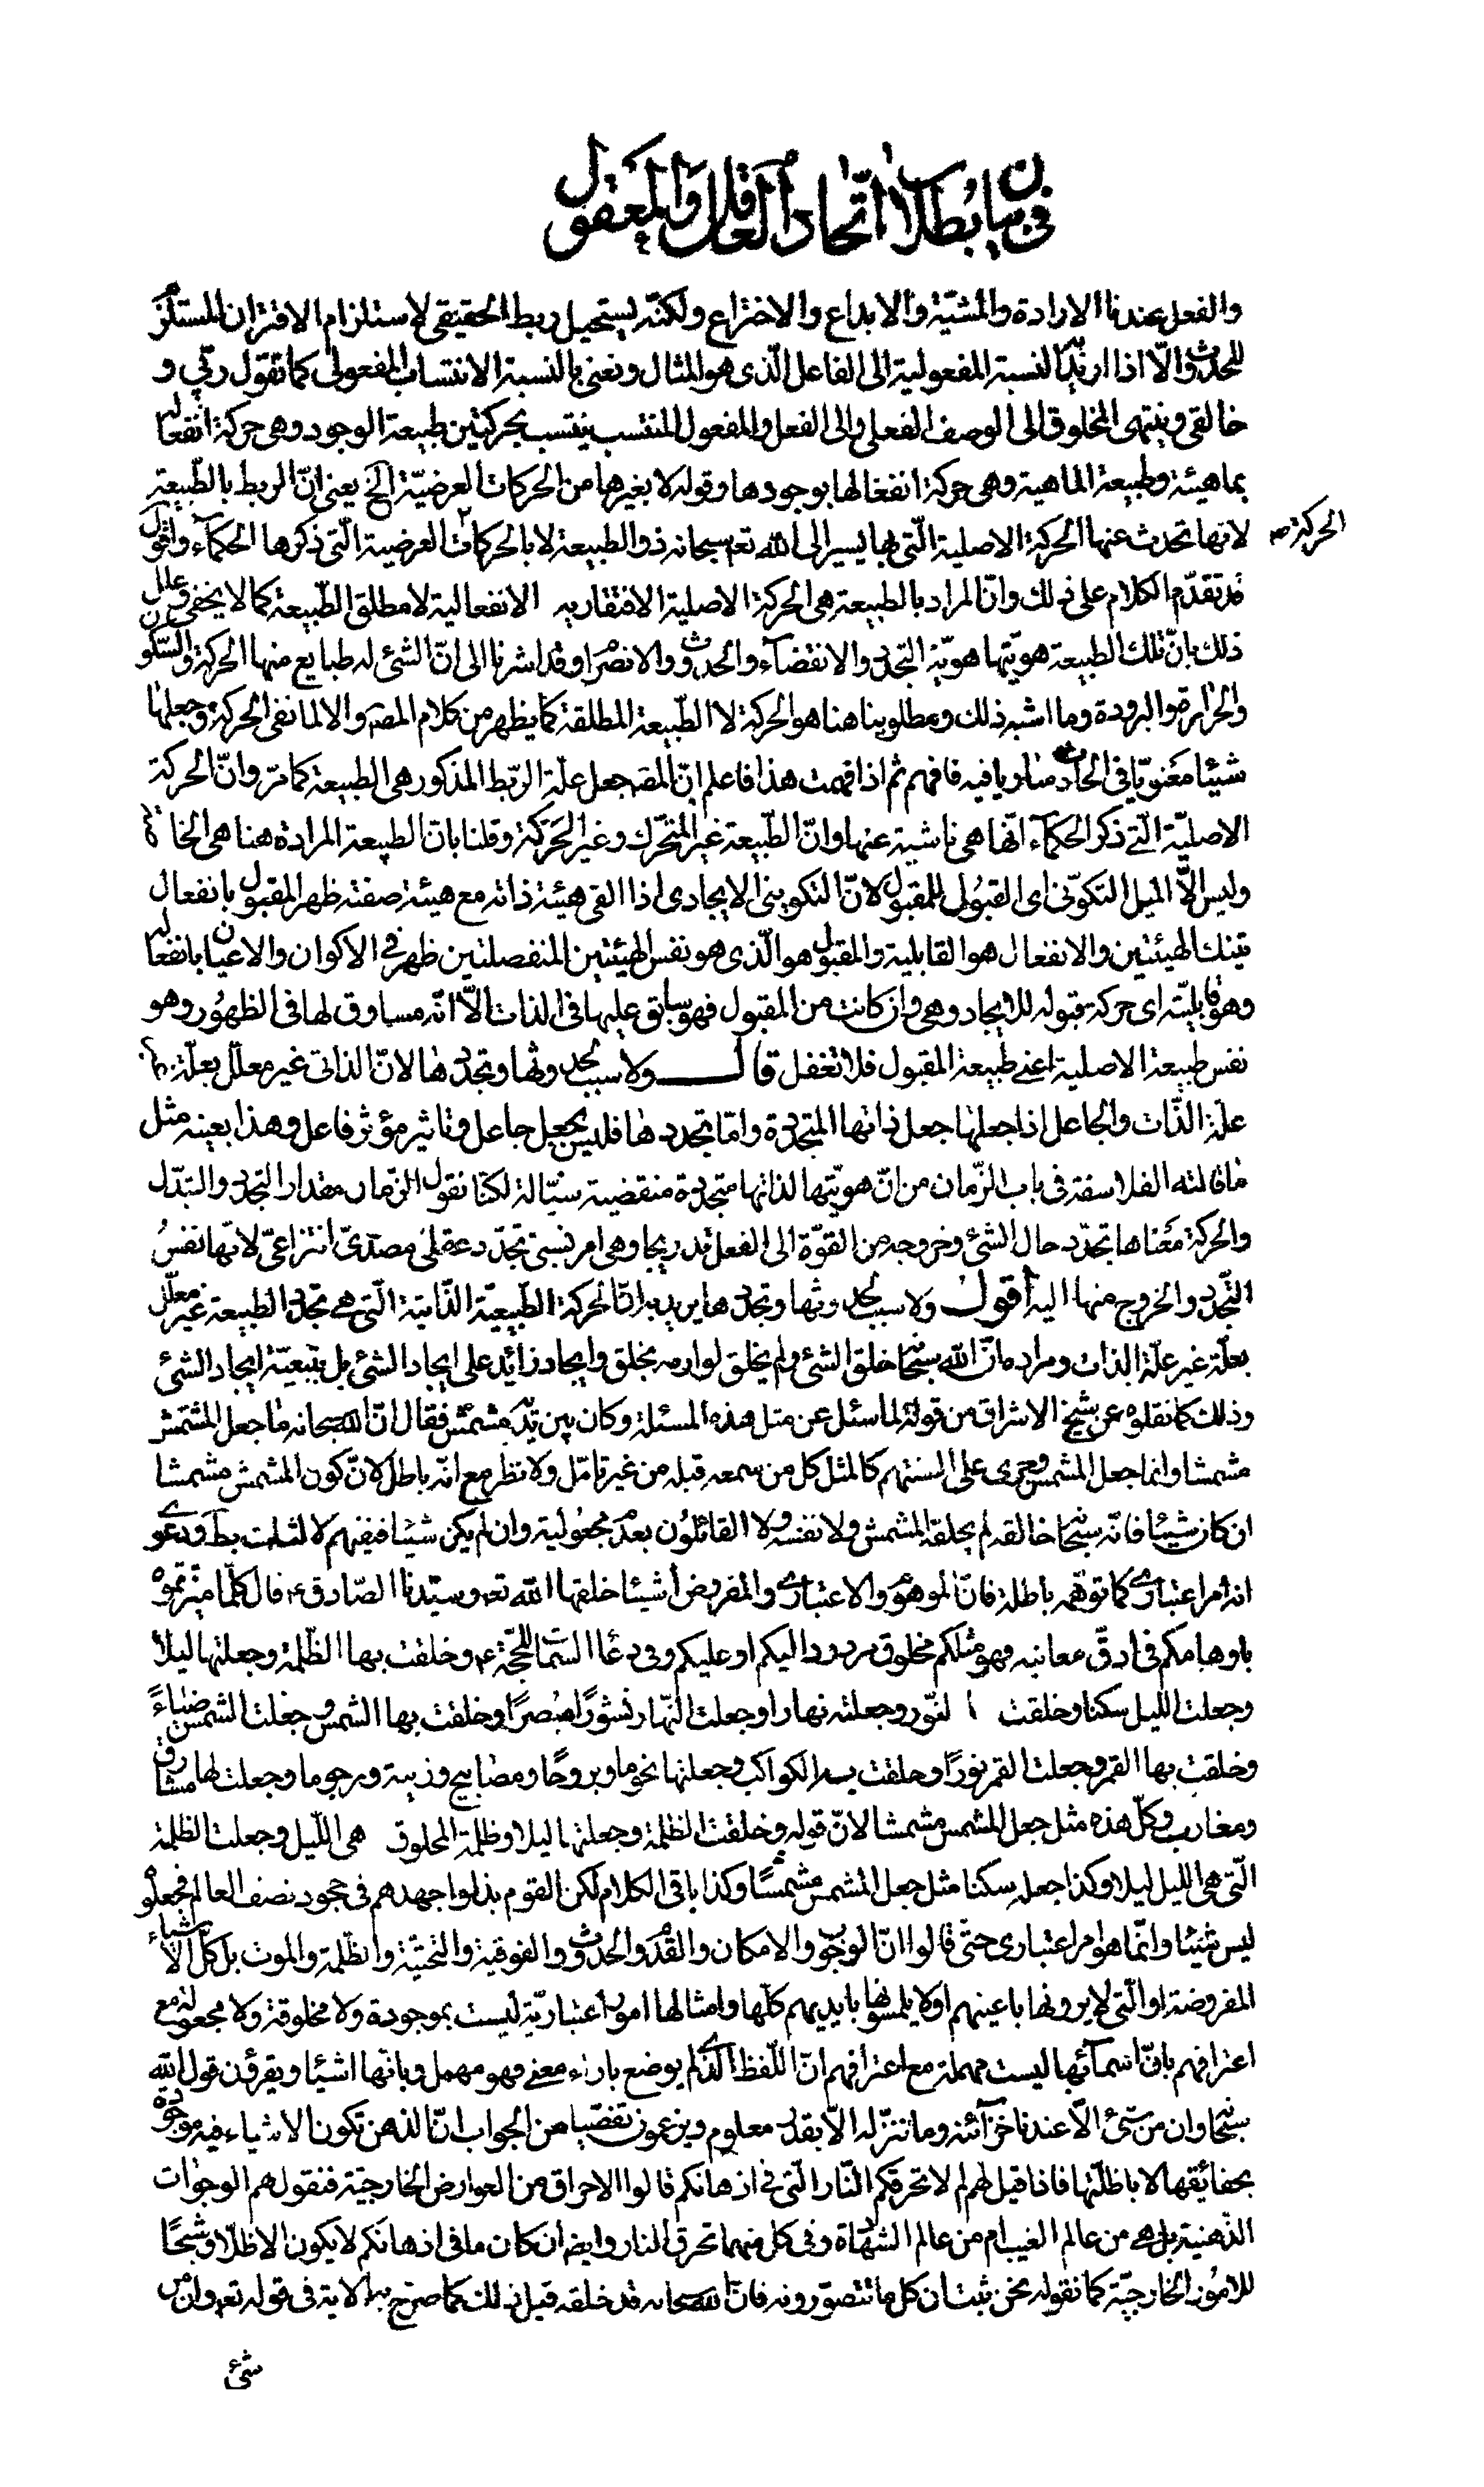 في بيان بطلان اتّحاد العاقل والمعقول
والفعل عندنا الارادة والمشيّة والابداع والاختراع ولكنّه يستحيل ربط الحقيقى لاستلزام الاقتران المستلزم
للحدوث والّا اذا اريد بالنسبة المفعولية الى الفاعل الّذى هو المثال ونعنى بالنسبة الانتساب المفعولى كما تقول ربّي و
خالقي وينتهى المخلوق الى الوصف الفعلى والى الفعل والمفعول المنتسب ينتسب بحركتين طبيعة الوجود وهى حركة انفعاله
بماهيته وطبيعة الماهية وهى حركة انفعالها بوجودها وقوله لا بغيرها من الحركات العرضيّة الخ يعنى انّ الربط بالطّبيعة
لانها تحدث عنها الحركة الاصلية الّتى بها يسير الى الله تعم سبحانه ذو الطبيعة لا بالحركات العرضية الّتى ذكرها الحكمآء واقول
الحركة صه
قد تقدّم الكلام على ذلك وانّ المراد بالطبيعة هى الحركة الاصلية الافتقاريه الانفعالية لا مطلق الطّبيعة كما لا يخفى وعلل
ذلك بانّ تلك الطبيعة هويّتها هويّة التجدد والانقضآء والحدوث والانصرام وقد اشرنا الى انّ الشئ له طبايع منها الحركة والسّكون
والحرارة والبرودة وما اشبه ذلك ومطلوبنا هنا هو الحركة لا الطّبيعة المطلقة كما يظهر من كلام المصـ والا لما نفى الحركة وجعلها
شيئا معنويّا فى الحادث متاريا فيه فافهم ثم اذا فهمت هذا فاعلم انّ المصـ جعل علّة الربّط المذكور هى الطبيعة كما مرّ وانّ الحركة
الاصليّة الّتے ذكر الحكمآء انّها هى ناشية عنها وانّ الطّبيعة غير المتحّرك وغير الحركة وقلنا بانّ الطبيعة المرادة هنا هى الخاصّة
وليس الاّ الميل التكوّنى اى القبولى للمقبول لانّ التكوينى الايجادى اذا القى هيئة ذاته مع هيئة صفته ظهر المقبول بانفعال
تينك الهيئتين والانفعال هو القابلية والمقبول هو الّذى هو نفس الهيئتين المنفصلتين ظهر في الاكوان والاعيان بانفعاله
وهو قابليّته اى حركة قبوله للايجاد وهى وان كانت من المقبول فهو سابق عليها فى الذات الاّ انّه مساوق لها فى الظهور وهو
نفس طبيعة الاصلية اعنے طبيعة المقبول فلا تغفل قال ولا سبب لحدوثها وتجدّدها لانّ الذاتى غير معلّل بعلّة
علّة الذّات والجاعل اذا جعلها جعل ذاتها المتجدّدة وامّا تجدّدها فليس بجعل جاعل وتاثير مؤثر فاعل وهذا بعينه مثل
ما قالته الفلاسفة فى باب الزّمان من انّ هويّتها لذاتها متجدّدة منقضية سيّالة لكنّا نقول الزّمان مقدار التجدد والتبدّل
والحركة معناها تجدّد حال الشئ وخروجه من القوّة الى الفعل تدريجا وهى امر نسبى تجدّد عقلى مصدرىّ انتزاعىّ لانّها نفس
التّجدّد والخروج منها اليه أقول ولا سبب لحدوثها وتجدّدها يريد به انّ الحركة الطّبيعيّة الذّاتية الّتى هى تجدّد الطبيعة غير معلّل
بعلّة غير علّة الذات ومراده انّ الله سبحا خلق الشئ ولم يخلق لوازمه بخلق وايجاد زائد على ايجاد الشئ بل بتبعيّة ايجاد الشئ
وذلك كما نقلوه عن شيخ الاشراق من قوله لما سئل عن مثل هذه المسئلة وكان بين يديه مشمش فقال انّ الله سبحانه ما جعل المشمش
مشمشا وانما جعل المشمش وجرى على السنتهم كالمثل كل من سمعه قبله من غير تامّل ولا نظر مع انّه باطل لانّ كون المشمش مشمشا
ان كان شيئا فانّه سبحا خالقه لم يخلقه المشمش ولا نفسه ولا القائلون بعدم مجعولية وان لم يكن شيئا فنفيهم لا لثابت بط ودعوے
انه امر اعتبارے كما توهّمه باطلة فانّ الموهوم والاعتبارے والمفروض اشيئا خلقها الله تعم وسيّدنا الصّادق ع قال كلّما ميّزتموه
باوهامكم فى ادقّ معانيه فهو مثلكم مخلوق مردود اليكم او عليكم وفى دعا السّمات للحجّة ع وخلقت بها الظّلمة وجعلتها ليلا
وجعلت الليل سكنا وخلقت ا لنّور وجعلته نهارا وجعلت النّهار نشورًا مبصرًا وخلقت بها الشمس وجعلت الشمس ضياءً
وخلقت بها القمر وجعلت القمر نورًا وخلقت بها الكواكب وجعلتها نجوما وبروجًا ومصابيح وزينة ورجوما وجعلت لها مشارق
ومغارب وكلّ هذه مثل جعل المشمش مشمشا لانّ قوله وخلقت الظلمة وجعلتها ليلا وظلمة المخلوق هى اللّيل وجعلت الظلمة
الّتى هى الليل ليلا وكذا جعله سكنا مثل جعل المشمش مشمشًا وكذا باقى الكلام لكن القوم بذلوا جهدهم فى جحود نصف العالم فجعلوْ
ليس شيئا وانّما هو امر اعتبارى حتّى قالوا انّ الوجوب والامكان والقدم والحدوث والفوقية والتحتيّة والظّلمة والموت بل كلّ الاشياء
المفروضة او الّتى لا يرونها باعينهم او لا يلمسونها بايديهم كلّها وامثالها امور اعتباريّة ليست بموجودة ولا مخلوقة ولا مجعولة مع
اعترافهم بانّ اسمآئها ليست مهملة مع اعترافهم انّ اللّفظ الّذے لم يوضع بازاء معنے فهو مهمل وبانّها اشيئا ويقرؤن قول الله
سبحا وان من شئ الاّ عندنا خزآئنه وما ننزّله الاّ بقدر معلوم ويزعمون تفصّيا من الجواب انّ الذهن تكون الاشياء فيه موجودة
بحقائقها لا باظلّتها فاذا قيل لهم لم لا تحرقكم النّار الّتى فى اذهانكم قالوا الاحراق من العوارض الخارجيّة فنقول لهم الوجودات
الذّهنية بل هے من عالم الغيب ام من عالم الشهادة وفى كل منهما تحرق النار وايضا ان كان ما فى اذهانكم لا يكون الا ظلا وشبحًا
للامور الخارجيّة كما نقوله نحن ثبت ان كل ما تتصوّرونه فانّ الله سبحانه قد خلقه قبل ذلك كما صرّح به الاية فى قوله تعم وان من
شئ